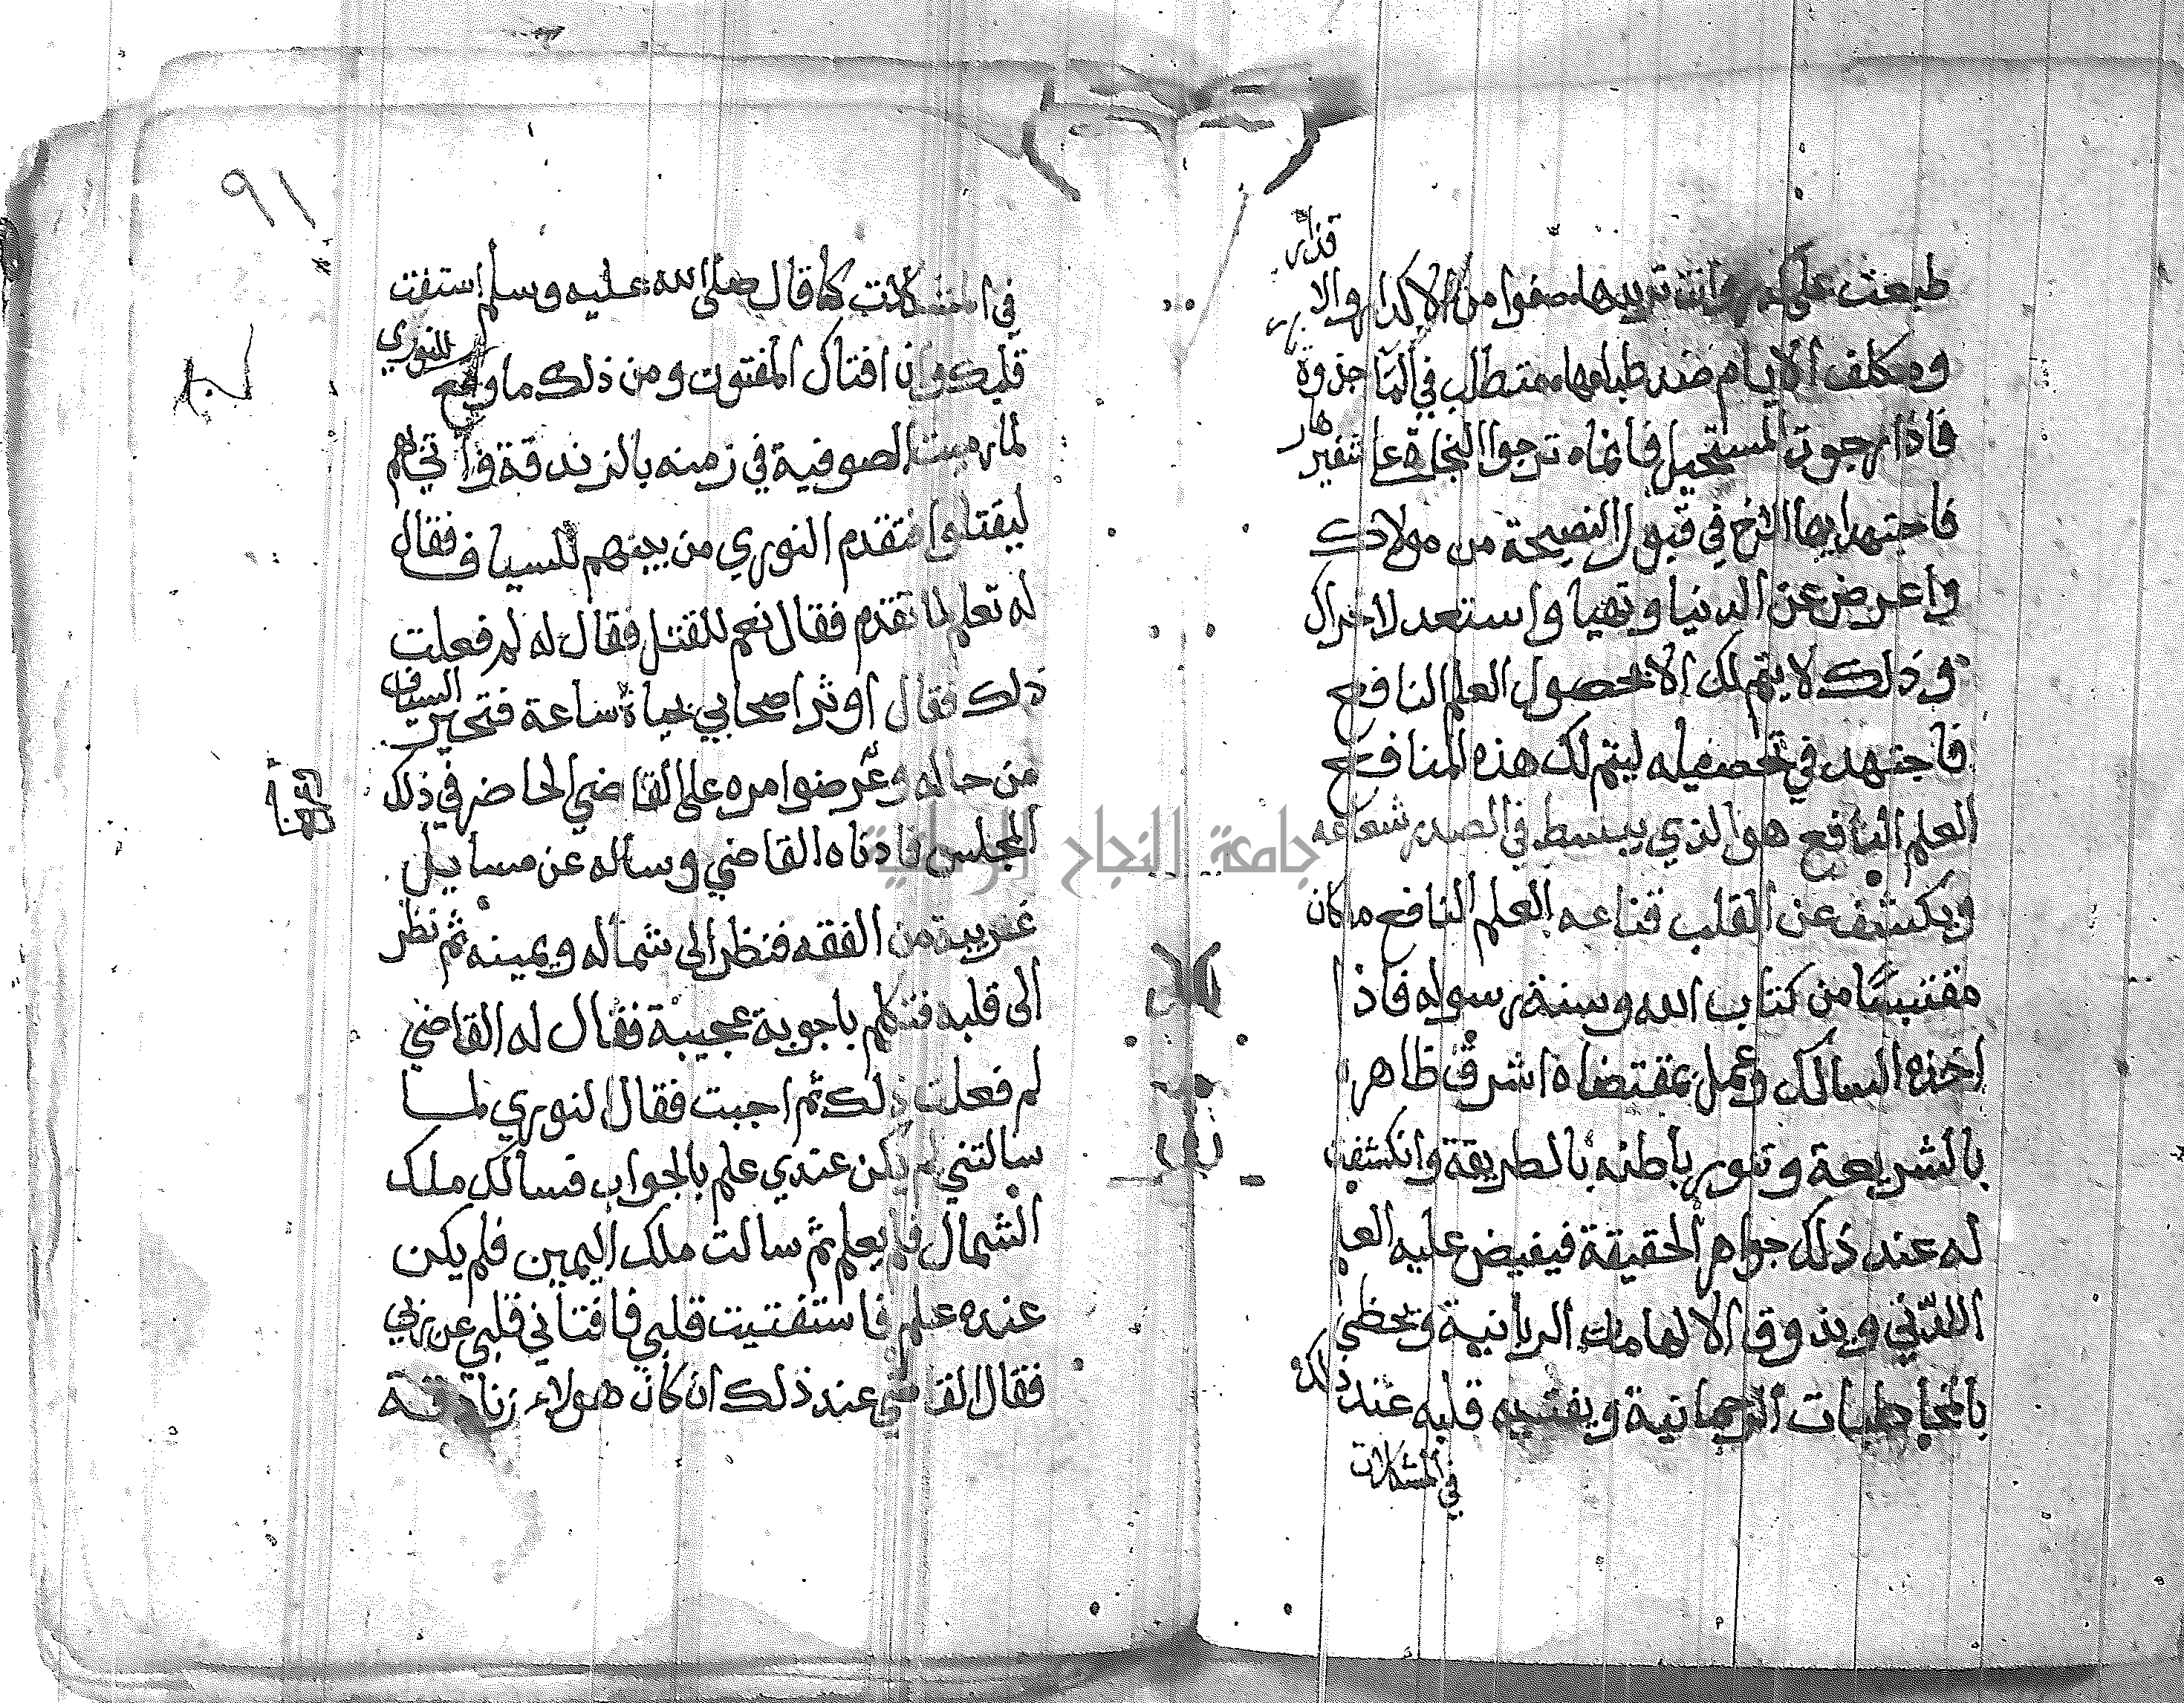 طبعت على كدر وانت تريدها صفوا من الاكدار والا
قذار
ومكلف الايام ضد طباعها متطلب في الما جذوة
نار
فاذا رجوت المستحيل فانما ترجوا النجاة على شفير
هار
فاجتهد ايها الاخ في قبول النصيحة من مولاك
واعرض عن الدنيا وتهيا واستعد لاخراك
وذلك لا يتم لك الا بحصول العلم النافع
فاجتهد في تحصيله ليتم لك هذه المنافع
العلم النافع هو الذي يبسط في الصدر شعاعه
ويكشف عن القلب قناعه العلم النافع ما كان
مقتبسا من كتاب الله وسنة رسوله فاذا
اخذه السالك وعمل بمقتضاه اشرق ظاهره
بالشريعة وتنور باطنه بالطريقة وانكشفت
له عند ذلك جواهر الحقيقة فيفيض عليه العلم
اللدني ويذوق الالهامات الربانية ويحظى
بالمخاطبات الرحمانية ويفتيه قلبه عند ذلك
في المشكلات
٩١
في المشكلات كما قال صلى الله عليه وسلم استفت
قلبك وان افتاك المفتون ومن ذلك ما وقع
للنوري
لما رميت الصوفية في زمنه بالزندقة واتي بهم
ليقتلوا فتقدم النوري من بينهم للسياف فقال
له تعلم لما تقدم فقال نعم للقتل فقال له لم فعلت
ذلك فقال اوثر اصحابي بحياة ساعة فتحير
السياف
من حاله وعرضوا امره على القاضي الحاضر في ذلك
المجلس فادناه القاضي وساله عن مسايل
غريبة من الفقه فنظر الى شماله ويمينه ثم نظر
الى قلبه فتكلم باجوبة عجيبة فقال له القاضي
لم فعلت ذلك ثم اجبت فقال النوري لما
سالتني لم يكن عندي علم بالجواب فسالت ملك
الشمال فلم يعلم ثم سالت ملك اليمين فلم يكن
عنده علم فاستفتيت قلبي فافتاني قلبي عن ربي
فقال القاضي عند ذلك ان كان هولاء زنادقة
جامعة النجاح الوطنية